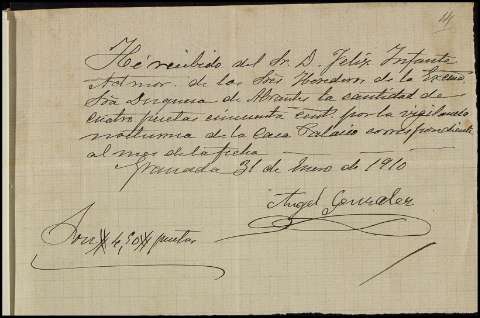 44
He recibido del Sr. D. Felix Infante
Admor. de los Sres Herederos de la Excma
Sra Duquesa de Abrantes la cantidad de
cuatro pesetas cincuenta cent. por la vigilancia
nocturna de la Casa Palacio correspondiente
al mes de la fecha
Granada 31 de Enero de 1910
Angel Gonzalez
Son # 4,50 # pesetas